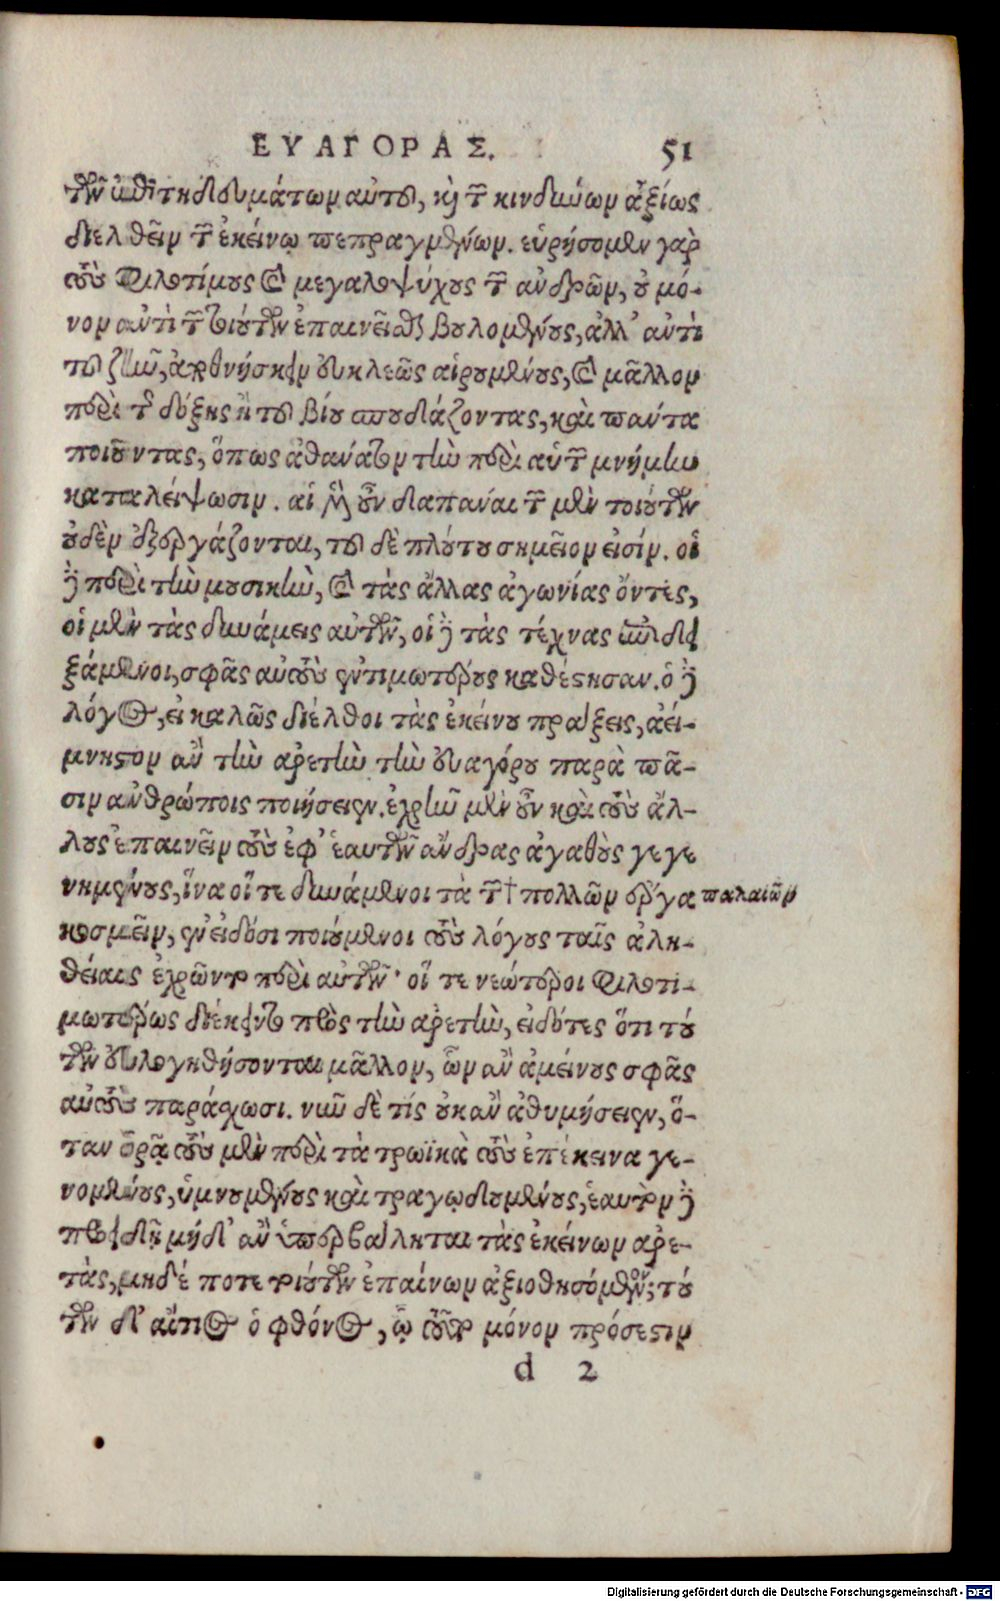 ΕΥΑΓΟΡΑΣ. 51
τῶν ἐπιτηδευμάτων αὐτοῦ, καὶ τῶν κινδύνων ἀξίως
διελθεῖν τῶν ἐκείνῳ πεπραγμένων. εὑρήσομεν γὰρ
τοὺς φιλοτίμους καὶ μεγαλοψύχους τῶν ἀνδρῶν, οὐ μό-
νον ἀντὶ τῶν τοιούτων ἐπαινεῖσθαι βουλομένους, ἀλλ' ἀντὶ
τοῦ ζῆν, ἀποθνήσκειν εὐκλεῶς αἱρουμένους, καὶ μᾶλλον
περὶ τῆς δόξης ἢ τοῦ βίου σπουδάζοντας, καὶ πάντα
ποιοῦντας, ὅπως ἀθάνατον τὴν περὶ αὑτῶν μνήμην
καταλείψωσιν. αἱ μὲν οὖν δαπάναι τῶν μὲν τοιούτων
οὐδὲν ἐξεργάζονται, τοῦ δὲ πλούτου σημεῖον εἰσίν. οἱ
δὲ περὶ τὴν μουσικὴν, καὶ τὰς ἄλλας ἀγωνίας ὄντες,
οἱ μὲν τὰς δυνάμεις αὐτῶν, οἱ δὲ τὰς τέχνας ἐπιδει
ξάμενοι, σφᾶς αὐτοὺς ἐντιμωτέρους κατέστησαν. ὁ δὲ
λόγος, εἰ καλῶς διέλθοι τὰς ἐκείνου πράξεις, ἀεί-
μνηστον ἂν τὴν ἀρετὴν τὴν εὐαγόρου παρὰ πᾶ-
σιν ἀνθρώποις ποιήσειεν. ἐχρῆν μὲν οὖν καὶ τοὺς ἄλ-
λους ἐπαινεῖν τοὺς ἐφ' ἑαυτῶν ἄνδρας ἀγαθοὺς γεγε
νημένους, ἵνα οἵ τε δυνάμενοι τὰ τῶν † πολλῶν ἔργα παλαιῶν
κοσμεῖν, ἐν εἰδόσι ποιούμενοι τοὺς λόγους ταῖς ἀλη-
θείαις ἐχρῶντο περὶ αὐτῶν· οἵ τε νεώτεροι φιλοτι-
μωτέρως διέκειντο πρὸς τὴν ἀρετὴν, εἰδότες ὅτι τού
των εὐλογηθήσονται μᾶλλον, ὧν ἂν ἀμείνους σφᾶς
αὐτοὺς παράσχωσι. νῦν δὲ τίς οὐκ ἂν ἀθυμήσειεν, ὅ-
ταν ὁρᾷ τοὺς μὲν περὶ τὰ τρωϊκὰ τοὺς ἐπέκεινα γε-
νομένους, ὑμνουμένους καὶ τραγῳδουμένους, ἑαυτὸν δὲ
προειδῇ μήδ' ἂν ὑπερβάληται τὰς ἐκείνων ἀρε-
τὰς, μηδέ ποτε τοιούτων ἐπαίνων ἀξιοθησόμενον; τού
των δ' αἴτιος ὁ φθόνος, ᾧ τοῦτο μόνον πρόσεστιν
d 2
Digitalisierung gefördert durch die Deutsche Forschungsgemeinschaft - DFG